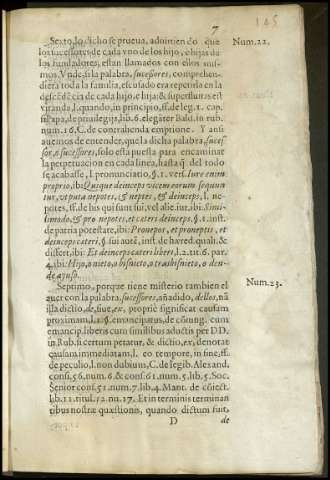 7
145
Sexto, lo dicho se prueua, aduirtiendo que
Num. 22.
los sucessores de cada vno de los hijo, e hijas de
los fundadores, estan llamados con ellos mis-
mos. Vnde si la palabra, sucessores, comprehen-
diera toda la familia, escusado era repetirla en la
descẽdẽcia de cada hijo, e hija: & superflua res est
vitanda, l. quando, in principio, ff. de leg. 1. cap.
si Papa, de priuilegijs, lib. 6. elegãter Bald. in rub.
num. 16. C. de contrahenda emptione. Y ansi
auemos de entender, que la dicha palabra, sucess-
sor, o sucessores, solo esta puesta para encaminar
la perpetuacion en cada linea, hasta q̃ del todo
se acabasse, l. pronunciatio, §. 1. vers. Iure enim
proprio, ibi: Quique deinceps vicem eorum sequun
tur, vt puta nepotes, & neptes, & deinceps, l. ne-
potes, ff. de his qui sunt sui, vel alie. iur. ibi: Simi-
li modo, & pro nepotes, et cæteri deinceps, §. 1. inst.
de patria potestate, ibi: Pronepos, et proneptis, et
deinceps cæteri, §. sui autẽ, inst. de hæred. quali. &
differt. ibi: Et deinceps cæteri liberi, l. 2. tit. 6. par.
4. ibi: Hijo, o nieto, o bisnieto, o trasbisnieto, o den-
de ayuso.
Septimo, porque tiene misterio tambien el
Num. 23.
auer con la palabra, sucessores, añadido, dellos, nã
illa dictio, de, siue, ex, propriè significat causam
proximam, l. 1. §. emancipatus, de cõiung. cum
emancip. liberis cum similibus aductis per DD.
in Rub. si certum petatur, & dictio, ex, denotat
causam immediatam, l. eo tempore, in fine, ff.
de peculio, l. non dubium, C. de legib. Alexand.
cons. 56. num. 6. & cons. 61. num. 5. lib. 5. Soc.
Senior cons. 51. num. 7. lib. 4. Mant. de cõiect.
lib. 11. titul. 12. nu. 17. Et in terminis terminan
tibus nostræ quæstionis, quando dictum fuit,
D
de